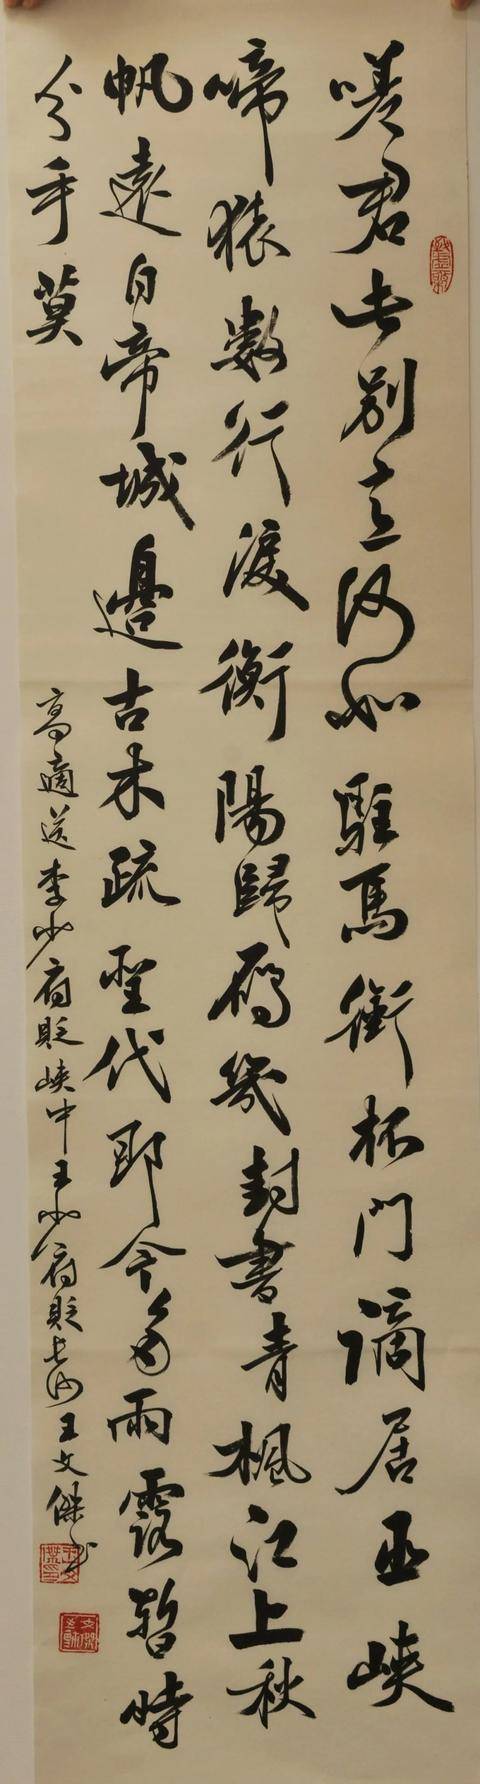 嗟君此别意何如駐馬銜杯門謫居巫峽
啼猿數行淚衡陽歸雁幾封書青楓江上秋
帆遠白帝城邊古木疏聖代即今多雨露暫時
分手莫
高適送李少府貶峽中王少府貶長沙王文傑書